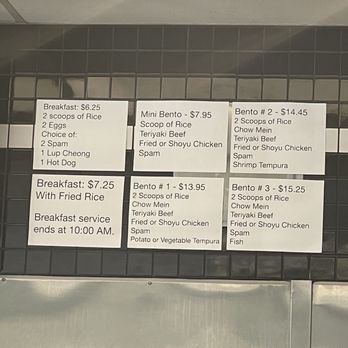 Breakfast: $6.25
2 scoops of Rice
2 Eggs
Choice of:
2 Spam
1 Lup Cheong
1 Hot Dog
Mini Bento - $7.95
Scoop of Rice
Teriyaki Beef
Fried or Shoyu Chicken
Spam
Bento # 2 - $14.45
2 Scoops of Rice
Chow Mein
Teriyaki Beef
Fried or Shoyu Chicken
Spam
Shrimp Tempura
Breakfast: $7.25
With Fried Rice
Breakfast service
ends at 10:00 AM.
Bento # 1 - $13.95
2 Scoops of Rice
Chow Mein
Teriyaki Beef
Fried or Shoyu Chicken
Spam
Potato or Vegetable Tempura
Bento # 3 - $15.25
2 Scoops of Rice
Chow Mein
Teriyaki Beef
Fried or Shoyu Chicken
Spam
Fish